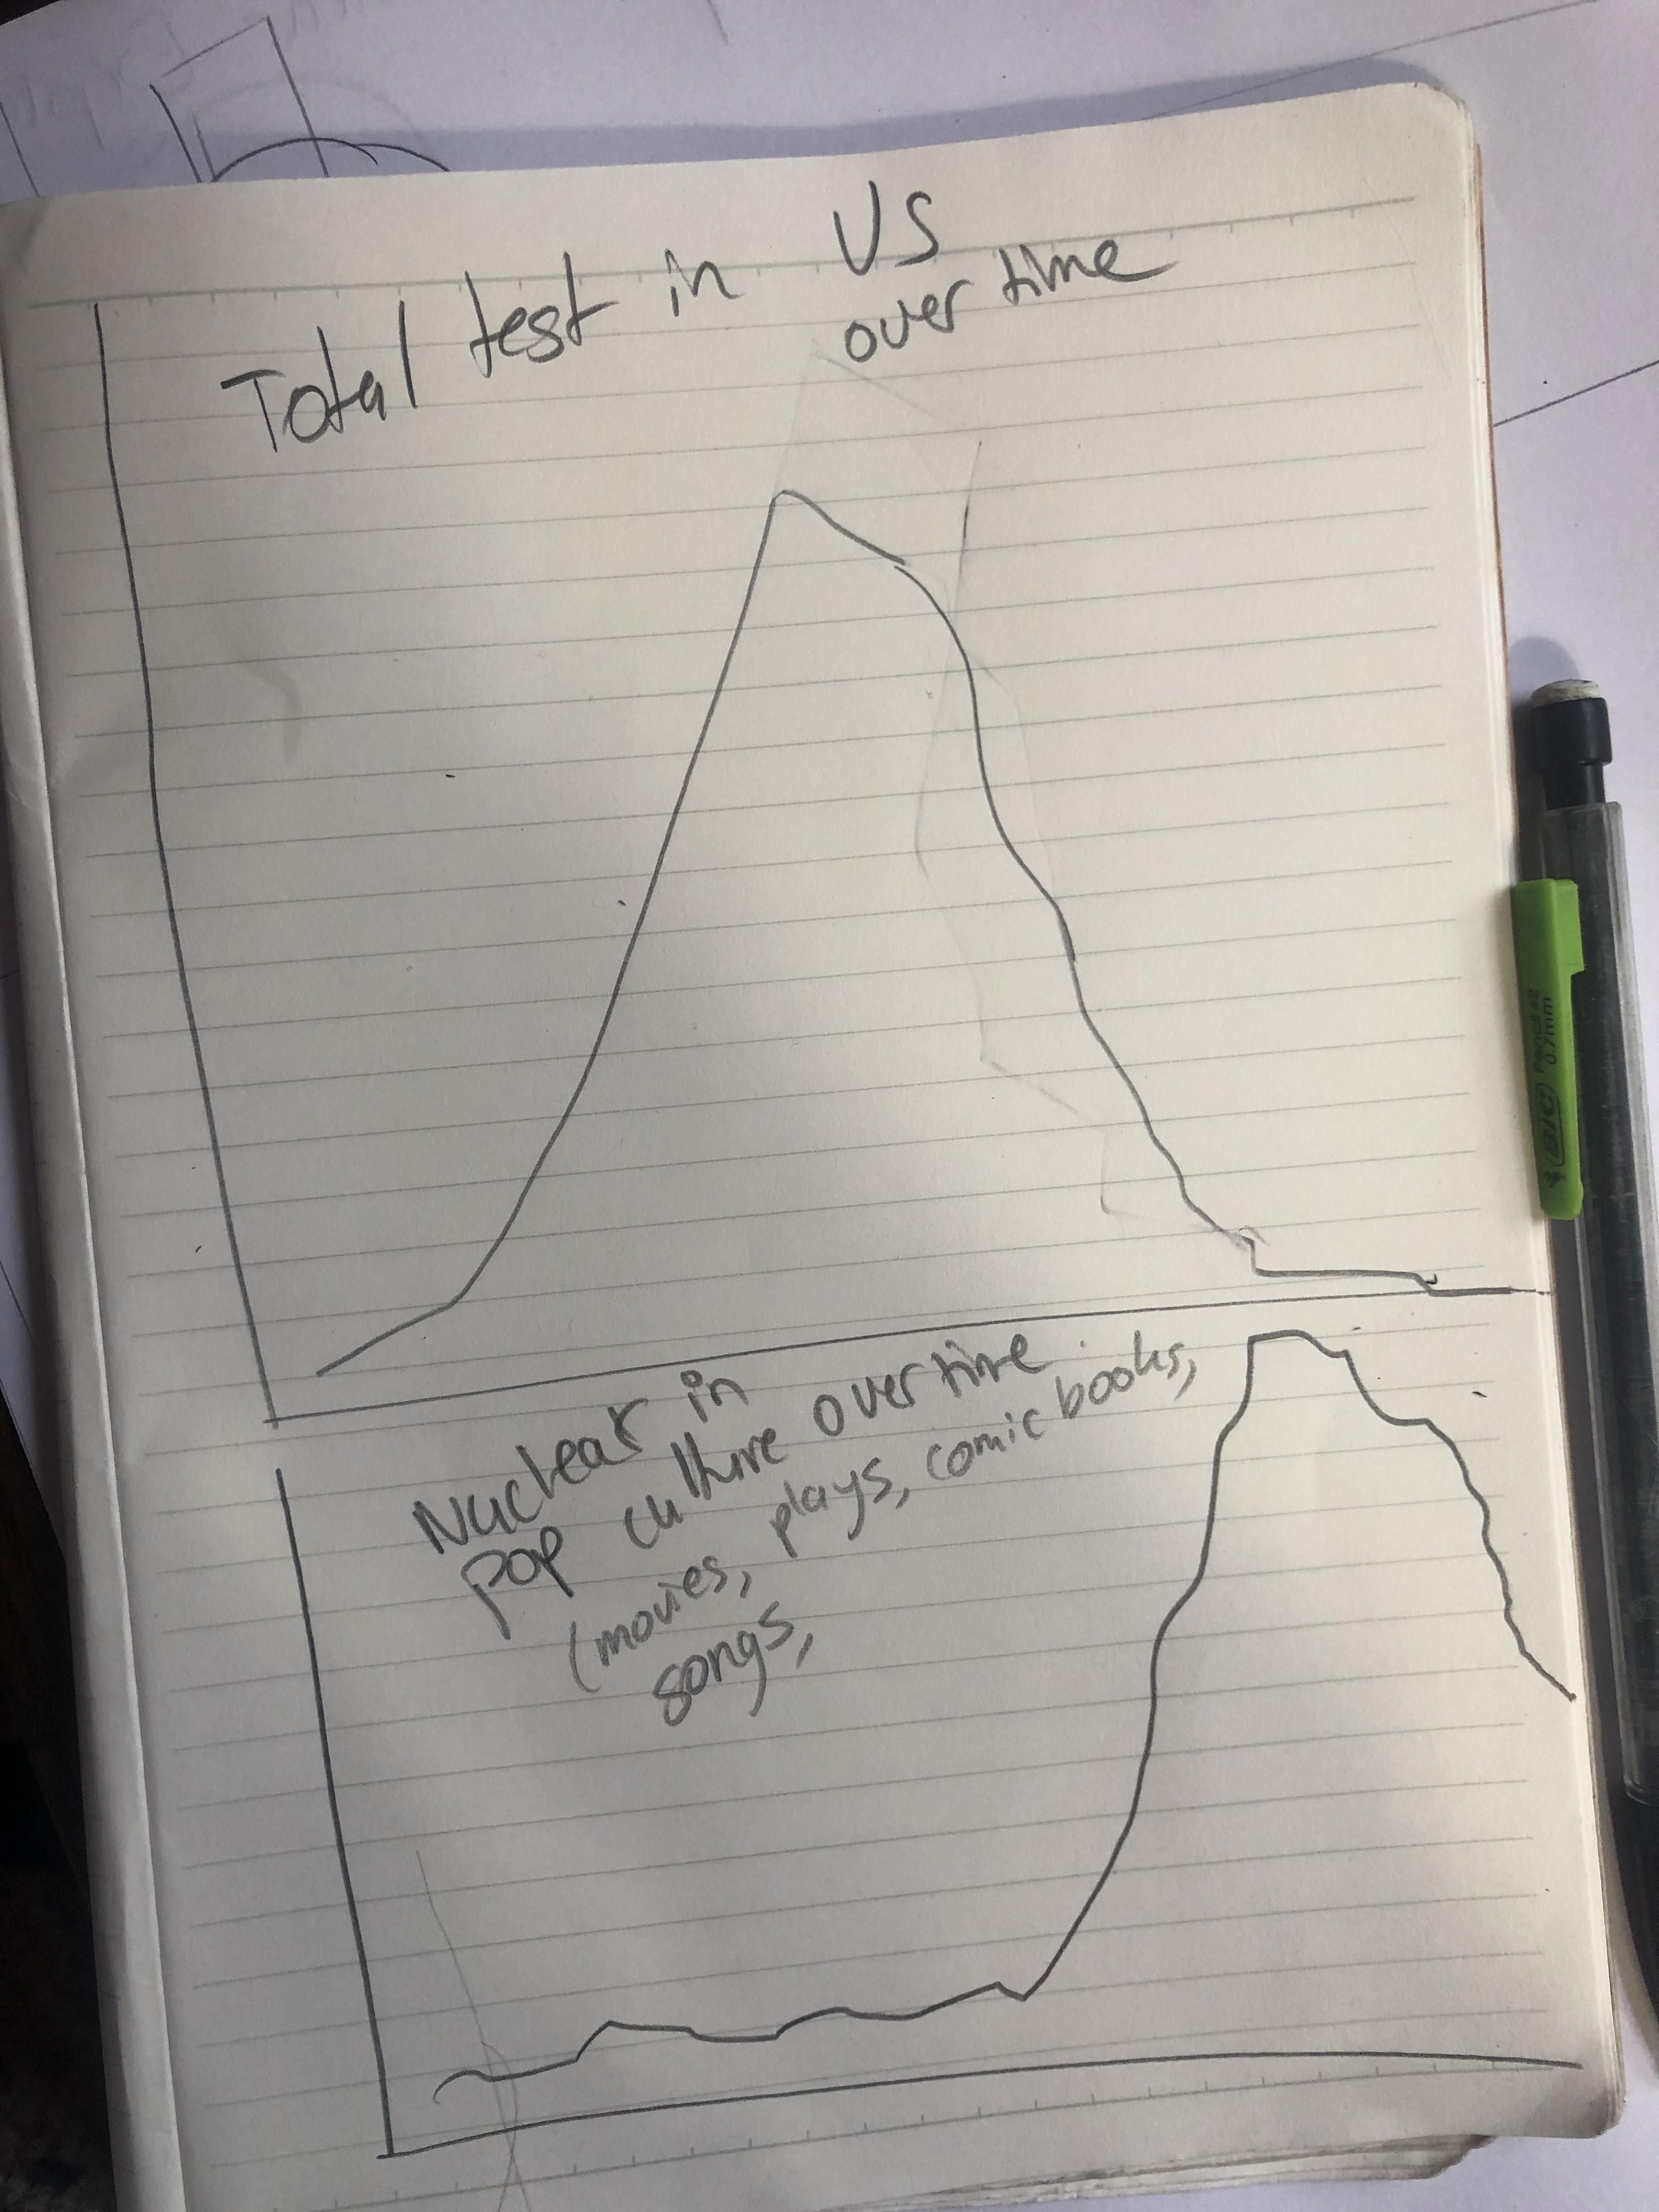 Total test in US
over time
Nuclear in
pop culture over time
(movies, plays, comic books,
songs,
BIC Pencil #2
0.7mm